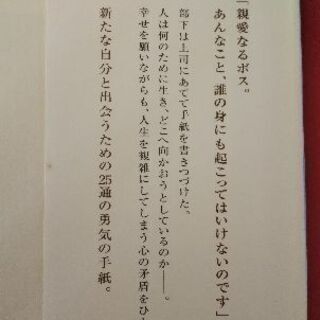 「親愛なるボス〟
あんなこと、誰の身にも起こってはいけないのです」
部下は上司にあてて手紙を書きつづけた、
人は何のために生き、どこへ向かおうとしているのか――。
幸せを願いながらも、人生を複雑にしてしまう心の矛盾をひ
新たな自分と出会うための25通の勇気の手紙。